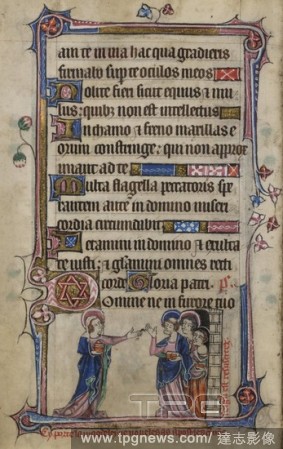 am te in via hac qua gradieris
firmabo sup te oculos meos
Nolite fieri sicut equus et mu
lus: quib; non est intellectus
In chamo et freno maxillas e
orum constringe: qui non approx
imant ad te
Multa flagella peccatoris spe
rantem aute in domino miseri
cordia circundabit
Letamini in domino et exulta
te iusti: et gloriamini omnes recti
corde Gloria patri
Domine ne in furore tuo
TPG
www.tpgnews.com/ 達志影像